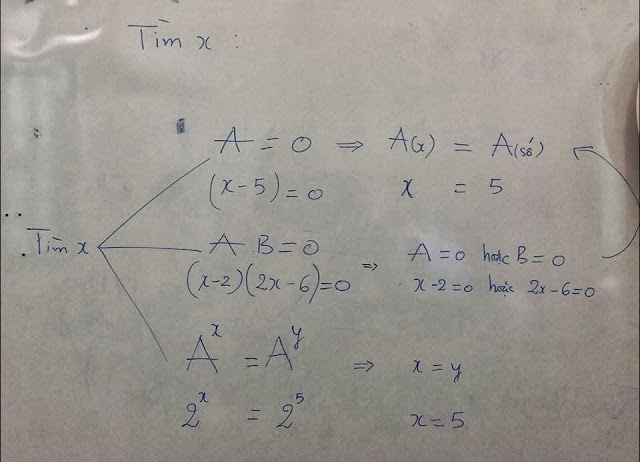 Tìm x :
A = 0 ⇒ A(x) = A(số)
(x-5) = 0 x = 5
Tìm x
A . B = 0 ⇒ A = 0 hoặc B = 0
(x-2)(2x-6) = 0 x-2=0 hoặc 2x-6=0
Aˣ = Aʸ ⇒ x = y
2ˣ = 2⁵ x = 5